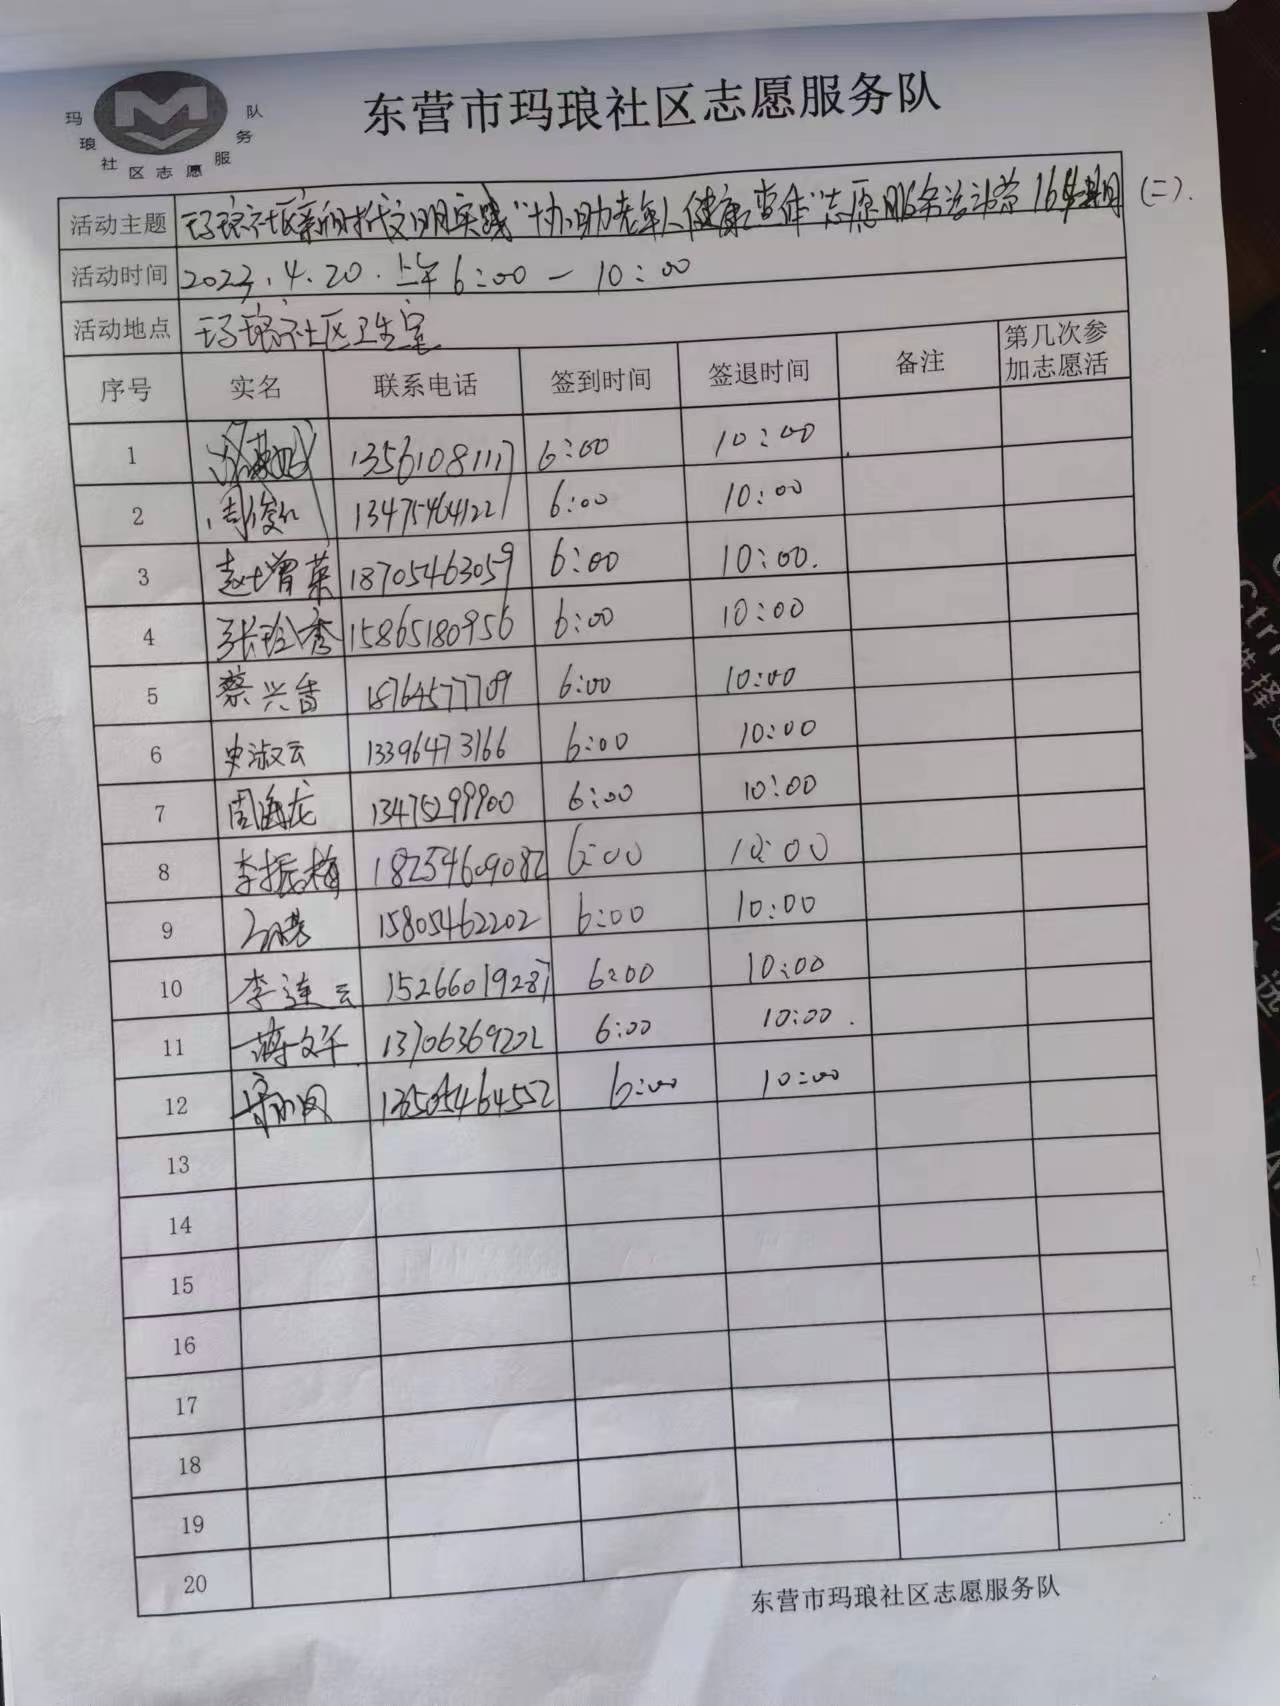 玛琅社区志愿服务队
东营市玛琅社区志愿服务队
活动主题 玛琅社区新时代文明实践“协助老年人健康查体”志愿服务活动第16期 (二).
活动时间 2023.4.20.上午6:00—10:00
活动地点 玛琅社区卫生室
序号 实名 联系电话 签到时间 签退时间 备注 第几次参
加志愿活
1 13561081117 6:00 10:00
2 周俊红 13475464122 6:00 10:00
3 赵增荣 18705463059 6:00 10:00.
4 张玲秀 15865180956 6:00 10:00
5 蔡兴香 18764577709 6:00 10:00
6 史淑云 13396473166 6:00 10:00
7 周海龙 13475299900 6:00 10:00
8 李振梅 18254609082 6:00 10:00
9 15805462202 6:00 10:00
10 李莲云 15266019287 6:00 10:00
11 蒋文华 13706369202 6:00 10:00.
12 13505464552 6:00 10:00
13
14
15
16
17
18
19
20
东营市玛琅社区志愿服务队
Ctrl
选择